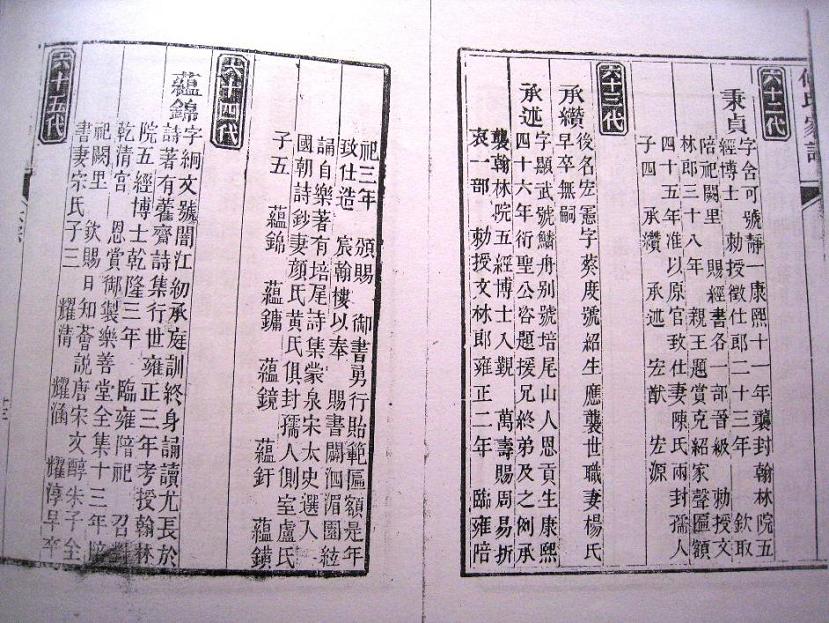 氏家譜
六十二代
秉貞
字含可號靜一康熙十一年襲封翰林院五
經博士 勅授徵仕郎二十三年 欽取
陪祀闕里 賜經書各一部晉級 勅授文
林郎三十八年 親王題賞克紹家聲匾額
四十五年准以原官致仕妻陳氏兩封孺人
子四 承纘 承述 宏猷 宏源
六十三代
承纘
後名宏憲字葵度號紹生應襲世職妻楊氏
早卒無嗣
承述
字顯武號鱗舟别號培尾山人恩貢生康熙
四十六年衍聖公咨題援兄終弟及之例承
襲翰林院五經博士入覲 萬壽賜周易折
衷一部 勅授文林郎雍正二年 臨雍陪
祀三年 頒賜 御書勇行貽範匾額是年
致仕造 宸翰樓以奉 賜書闢洄湄園絃
誦自樂著有培尾詩集蒙泉宋太史選入
國朝詩鈔妻顏氏黄氏俱封孺人側室盧氏
子五 蘊錦 蘊鏞 蘊鏡 蘊釪 蘊鐄
六十四代
蘊錦
字絅文號闇江幼承庭訓終身誦讀尤長於
詩著有藿齋詩集行世雍正三年考授翰林
院五經博士乾隆三年 臨雍陪祀 召對
乾清宫 恩賞御製樂善堂全集十三年陪
祀闕里 欽賜日知薈說唐宋文醇朱子全
書妻宗氏子三 耀清 耀涵 耀淳早卒
六十五代